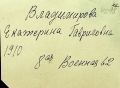 Владимирова
Екатерина Гавриловна
1910
8 Военная 62